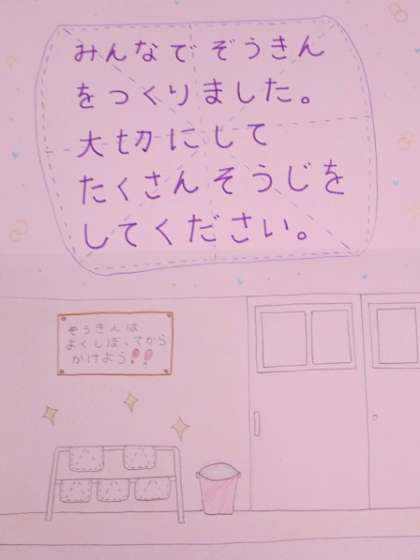 みんなでぞうきん
をつくりました。
大切にして
たくさんそうじを
してください。
ぞうきんは
よくしぼってから
かけよう!!